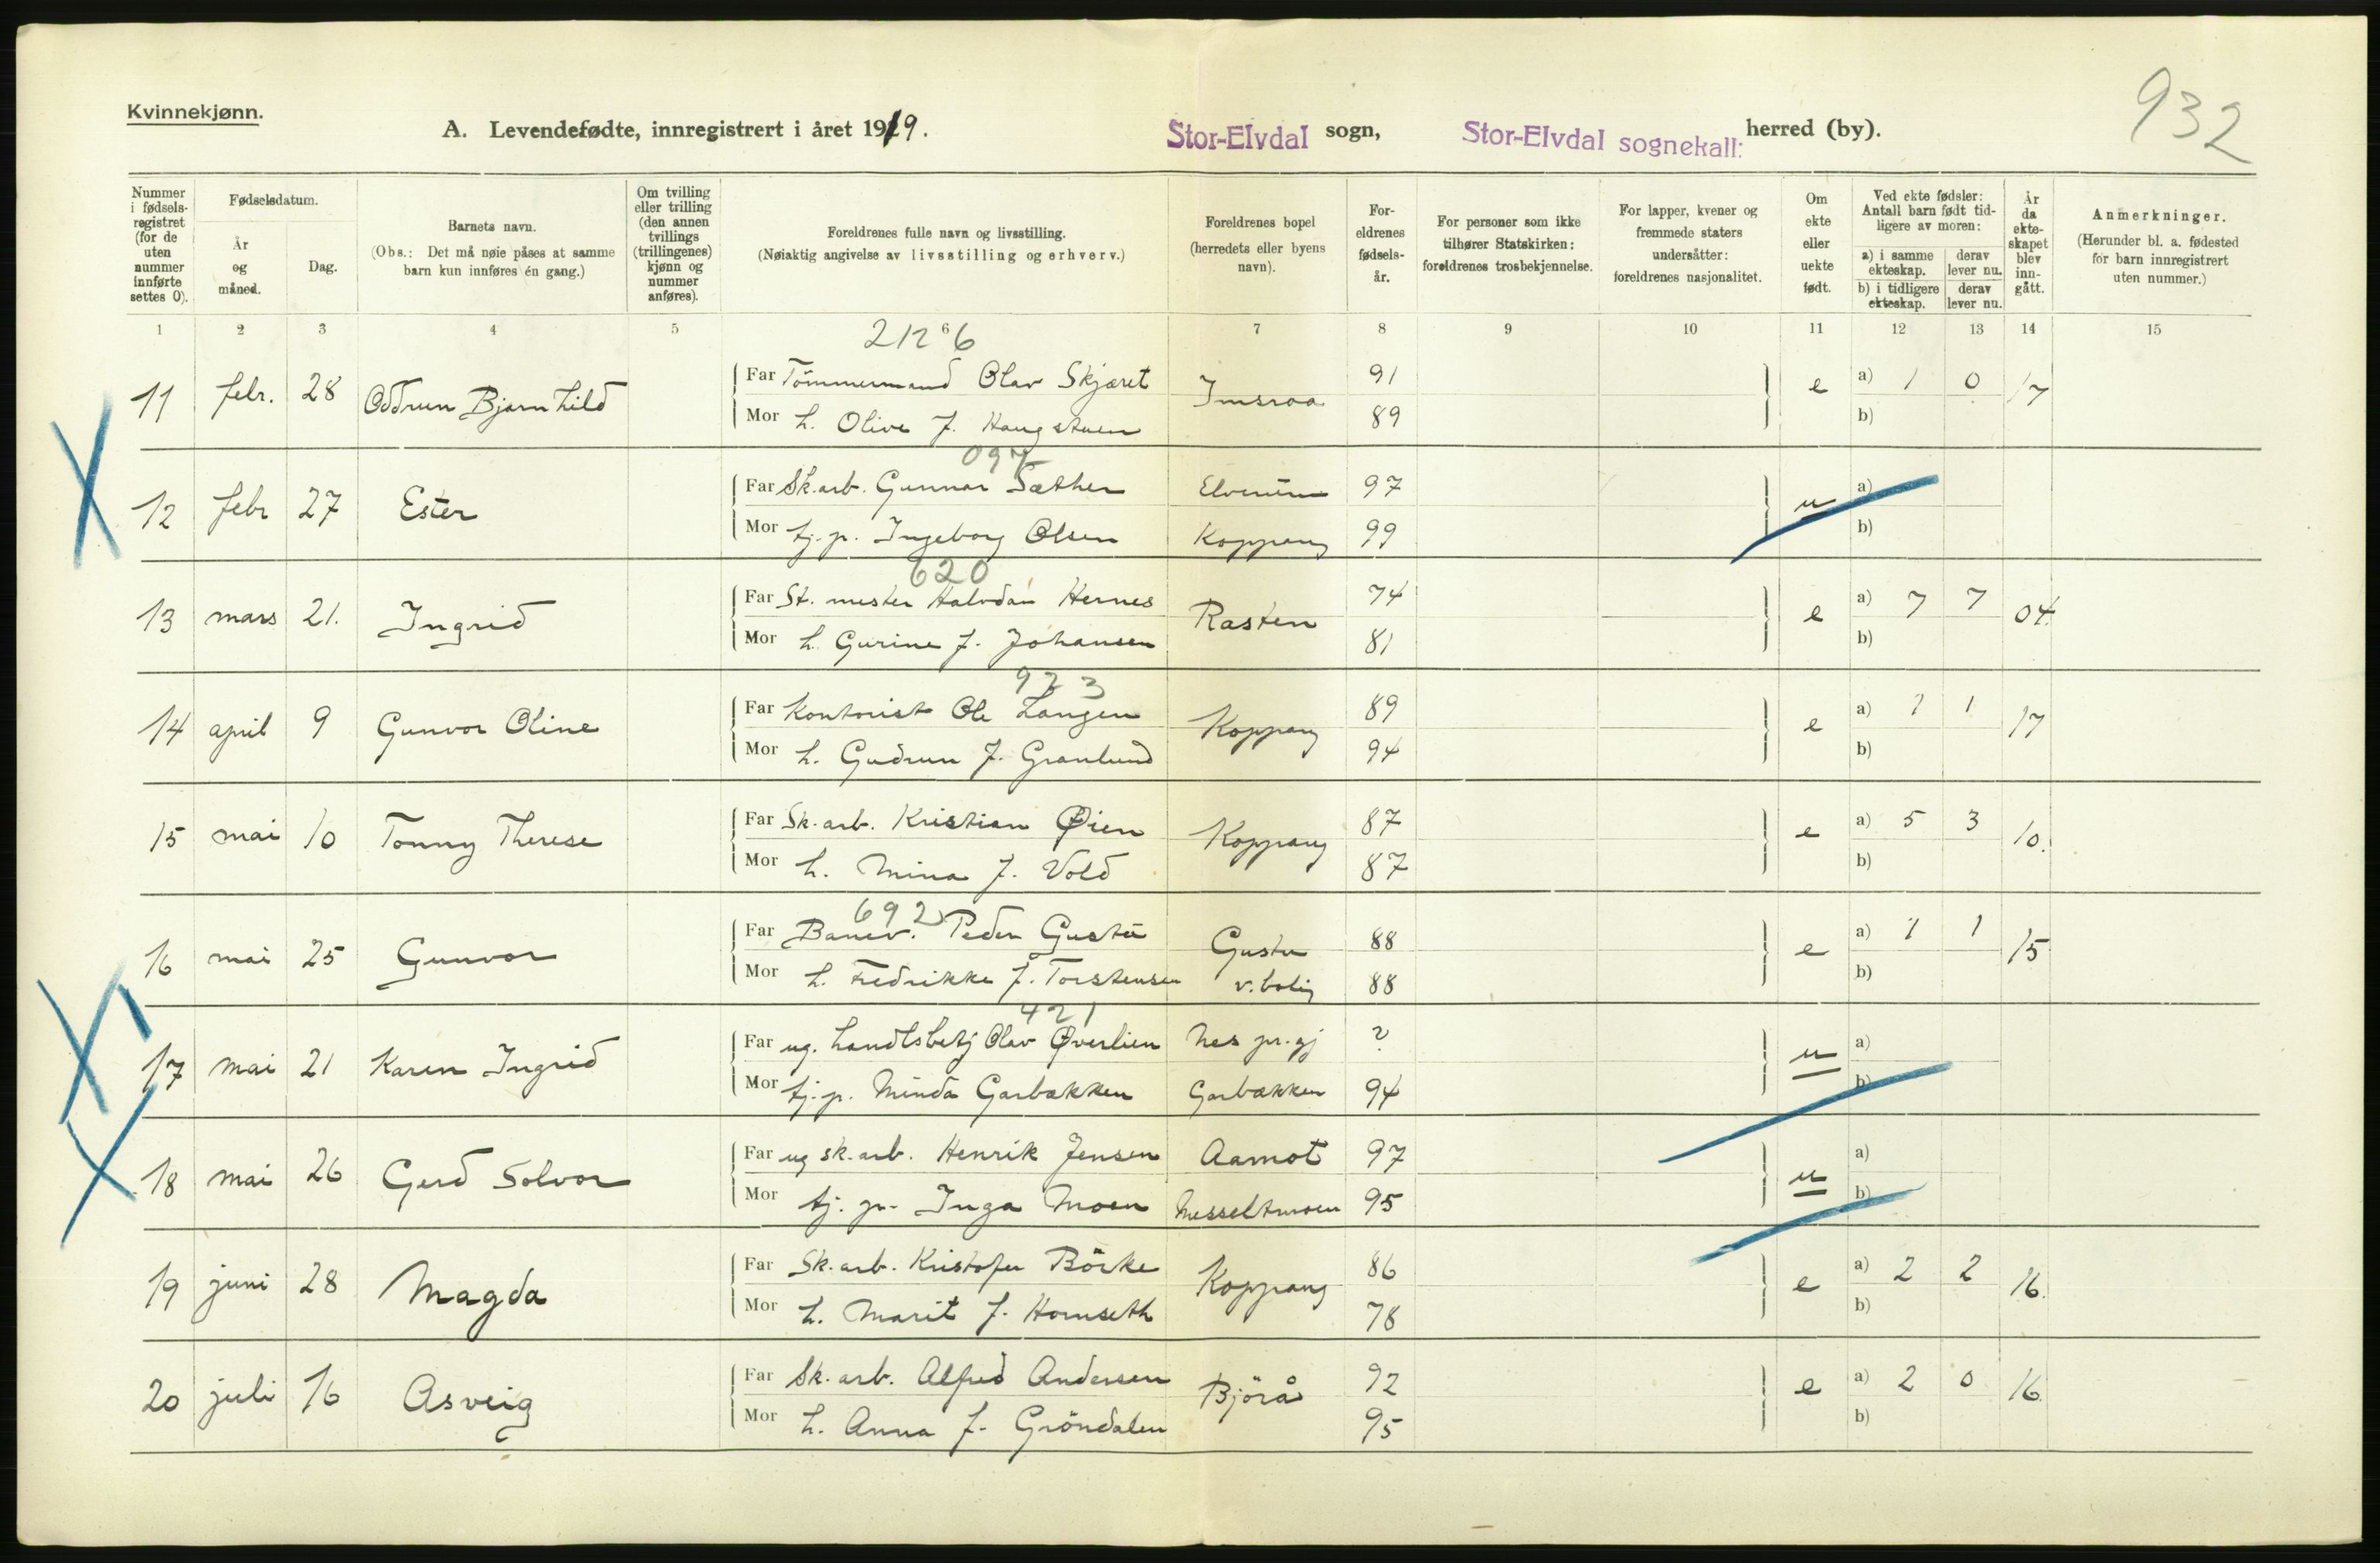 932
Kvinnekjønn.
A. Levendefødte, innregistrert i året 1919. Stor-Elvdal sogn, Stor-Elvdal sognekall: herred (by).
Nummer i fødselsregistret (for de uten nummer innførte settes 0).
Fødselsdatum.
År og måned.
Dag.
Barnets navn.
(Obs.: Det må nøie påses at samme barn kun innføres én gang.)
Om tvilling eller trilling (den annen tvillings (trillingenes) kjønn og nummer anføres).
Foreldrenes fulle navn og livsstilling.
(Nøiaktig angivelse av livsstilling og erhverv.)
Foreldrenes bopel (herredets eller byens navn).
Foreldrenes fødselsår.
For personer som ikke tilhører Statskirken: foreldrenes trosbekjennelse.
For lapper, kvener og fremmede staters undersåtter: foreldrenes nasjonalitet.
Om ekte eller uekte født.
Ved ekte fødsler: Antall barn født tidligere av moren:
a) i samme ekteskap. derav lever nu.
b) i tidligere ekteskap. derav lever nu.
År da ekteskapet blev inngått.
Anmerkninger.
(Herunder bl. a. fødested for barn innregistrert uten nummer.)
1 2 3 4 5 6 7 8 9 10 11 12 13 14 15
2126
11 febr. 28 Oddrun Bjarnhild Far Tömmermand Olav Skjæret Imsroa 91 e a) 1 0 17
Mor h. Olive f. Haugstuen 89 b)
097
12 febr 27 Ester Far Sk.arb. Gunnar Sæther Elverum 97 u a)
Mor tj.p. Ingeborg Olsen Koppang 99 b)
620
13 mars 21. Ingrid Far St. mester Halvdan Hernes Rasten 74 e a) 7 7 04.
Mor h. Gurine f. Johansen 81 b)
923
14 april 9 Gunvor Oline Far Kontorist Ole Langen Koppang 89 e a) 1 1 17
Mor h. Gudrun f. Granlund 94 b)
15 mai 10 Tonny Therese Far Sk.arb. Kristian Øien Koppang 87 e a) 5 3 10.
Mor h. Mina f. Vold 87 b)
692
16 mai 25 Gunvor Far Banev. Peder Gustu Gustu 88 e a) 1 1 15
Mor h. Fredrikke f. Torstensen v.bolig 88 b)
421
17 mai 21 Karen Ingrid Far ug. handlsbetj Olav Øverlien Nes pr.gj ? u a)
Mor tj.p. Minda Garbækken Garbækken 94 b)
18 mai 26 Gerd Solvor Far ug sk.arb. Henrik Jensen Aamot 97 u a)
Mor tj.p. Inga Moen Messeltmoen 95 b)
19 juni 28 Magda Far Sk.arb. Kristofer Börke Koppang 86 e a) 2 2 16.
Mor h. Marit f. Hornseth 78 b)
20 juli 16 Asveig Far Sk.arb. Alfred Andersen Björå 92 e a) 2 0 16.
Mor h. Anna f. Gröndalen 95 b)